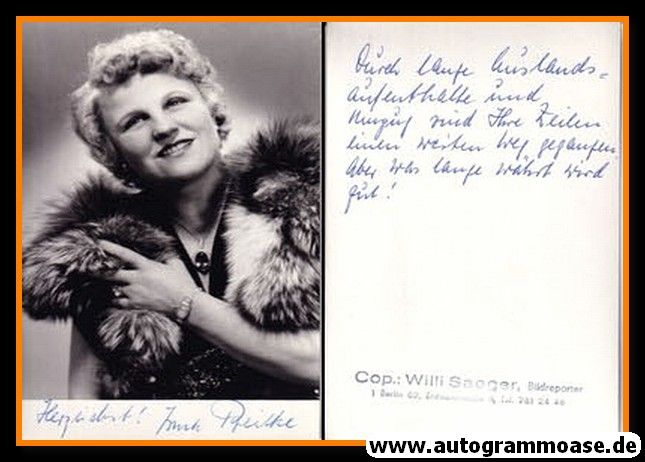 Herzlichst!
Durch lange Auslands=
aufenthalte und
Umzug sind Ihre Zeilen
einen weiten Weg gegangen
Aber was lange währt wird
gut!
Cop.: Willi Saeger, Bildreporter
1 Berlin 62,
www.autogrammoase.de